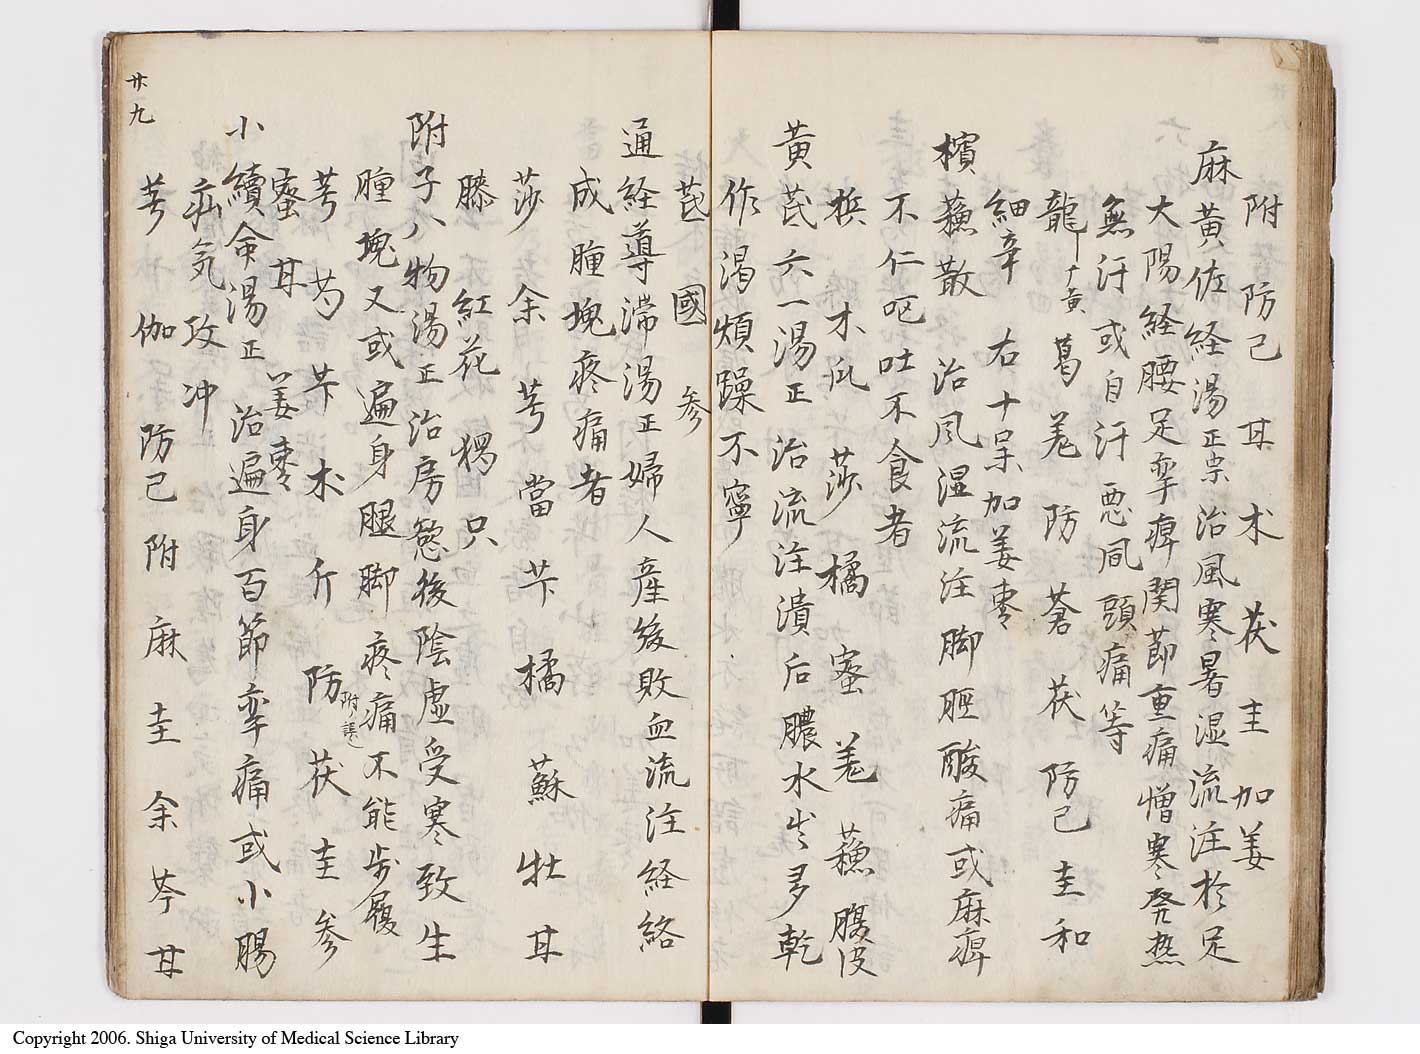 附 防己 甘 朮 茯 圭 加姜
麻黄佐経湯正宗治風寒暑湿流注於足
大陽経腰足挛痺関節重痛憎寒発热
無汗或自汗悪風頭痛等
龍十黄葛羗防蒼茯防己圭和
細辛 右十味加姜枣
檳蘓散 治風湿流注脚脛酸痛或麻痺
不仁呕吐不食者
梹 木瓜 莎 橘 蜜 羗 蘓 腹皮
黄芪六一湯正 治流注潰后膿水出多乾
作渇煩躁不寧
芪 國 参
通経導滞湯正婦人産後敗血流注経絡
成腫塊疼痛者
莎 余 芎 當 芐 橘 蘇 牡 甘
膝 紅花 獨 只
附子八物湯正治房慾後陰虚受寒致生
腫塊又或遍身腿脚疼痛不能歩履
芎 芍 芐 术 斤 防 茯 圭 参
附
蜜 甘 姜枣
小續命湯正 治遍身百節挛痛或小腸
疝気攻冲
芎 伽 防己 附 麻 圭 余 芩 甘
廿九
Copyright 2006. Shiga University of Medical Science Library